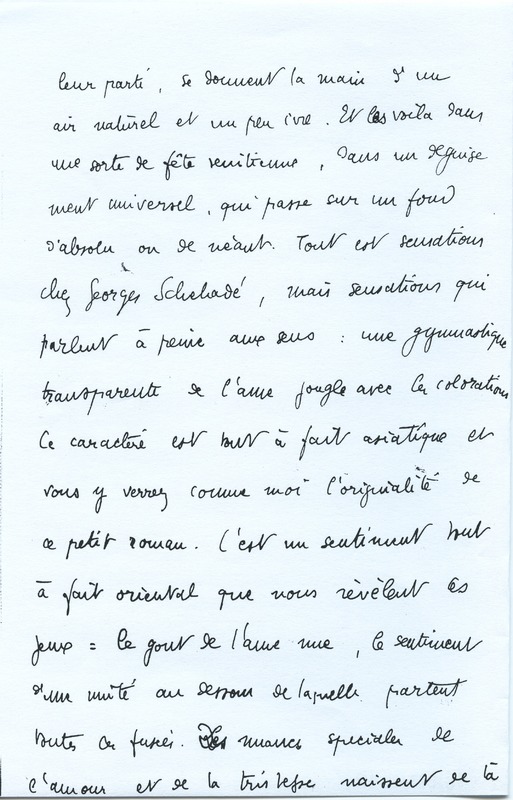 leur parté, se donnent la main d'un
air naturel et un peu ivre. Et les voila dans
une sorte de fête venitienne, dans un deguise
ment universel, qui passe sur un fond
d'absolu ou de néant. Tout est sensations
chez Georges Schehadé, mais sensations qui
parlent à peine aux sens : une gymnastique
transparente de l'ame jongle avec les colorations
Ce caractère est tout à fait asiatique et
vous y verrez comme moi l'originalité de
ce petit roman. C'est un sentiment tout
à fait oriental que nous révèlent ces
jeux = le gout de l'ame nue, le sentiment
d'un unité au dessous de laquelle partent
toutes ces fusées. Des nuances speciales de
l'amour et de la tristesse naissent de là